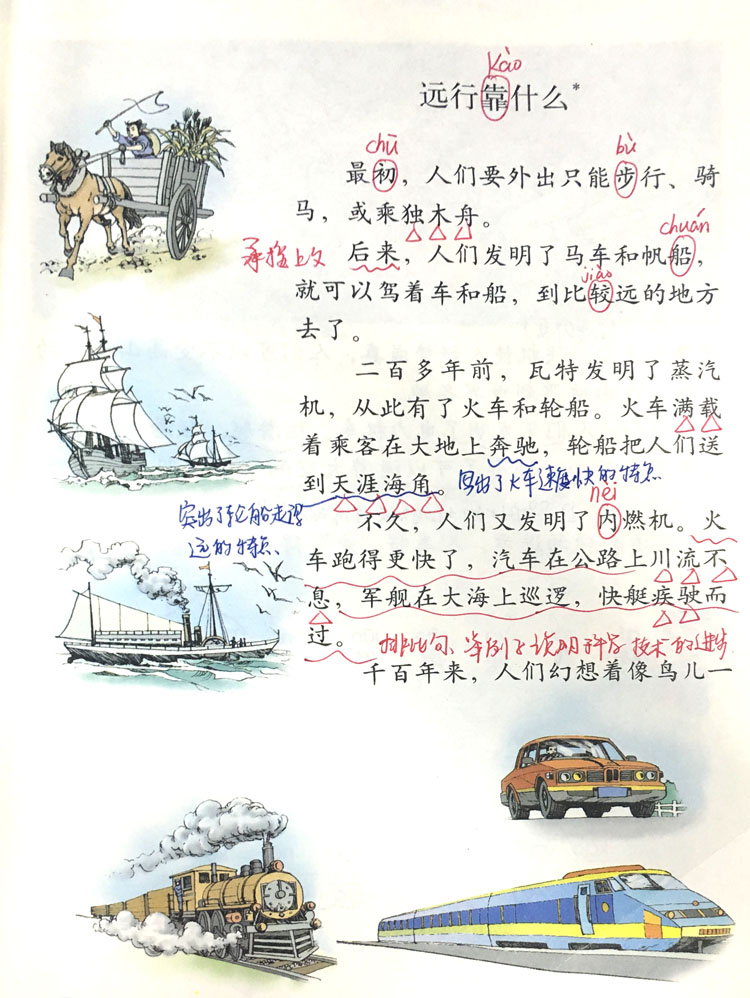 kào
远行靠什么*
chū
bù
最初，人们要外出只能步行、骑
马，或乘独木舟。
chuán
承接上文
后来，人们发明了马车和帆船，
jiào
就可以驾着车和船，到比较远的地方
去了。
二百多年前，瓦特发明了蒸汽
机，从此有了火车和轮船。火车满载
着乘客在大地上奔驰，轮船把人们送
到天涯海角。
写出了火车速度快的特点
突出了轮船走得
远的特点、
nèi
不久，人们又发明了内燃机。火
车跑得更快了，汽车在公路上川流不
息，军舰在大海上巡逻，快艇疾驶而
过。
排比句、举例子说明科学技术的进步
千百年来，人们幻想着像鸟儿一